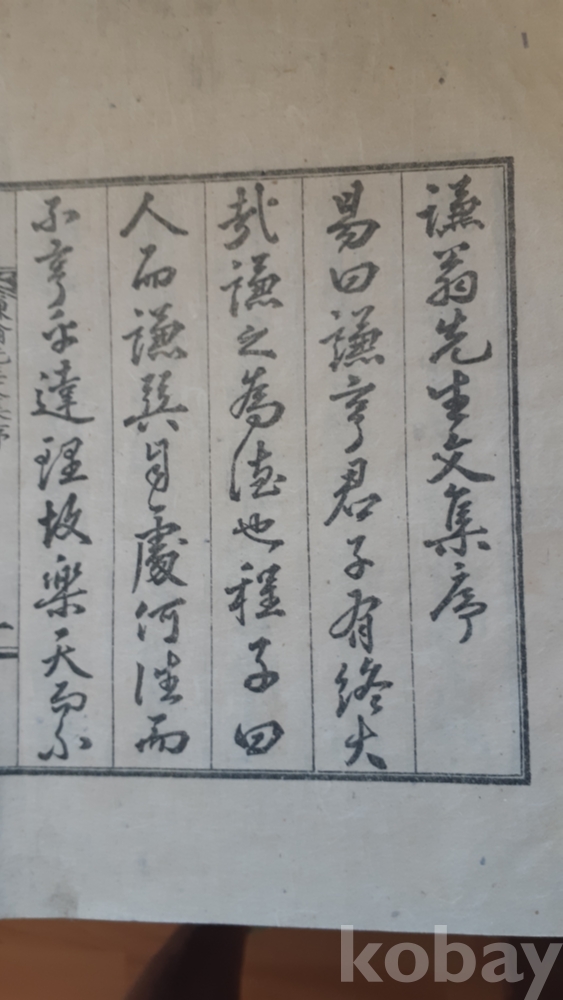 謙翁先生文集序
易曰謙亨君子有終大
哉謙之為德也程子曰
人而謙巽自處何往而
不亨乎達理故樂天而不
kobay